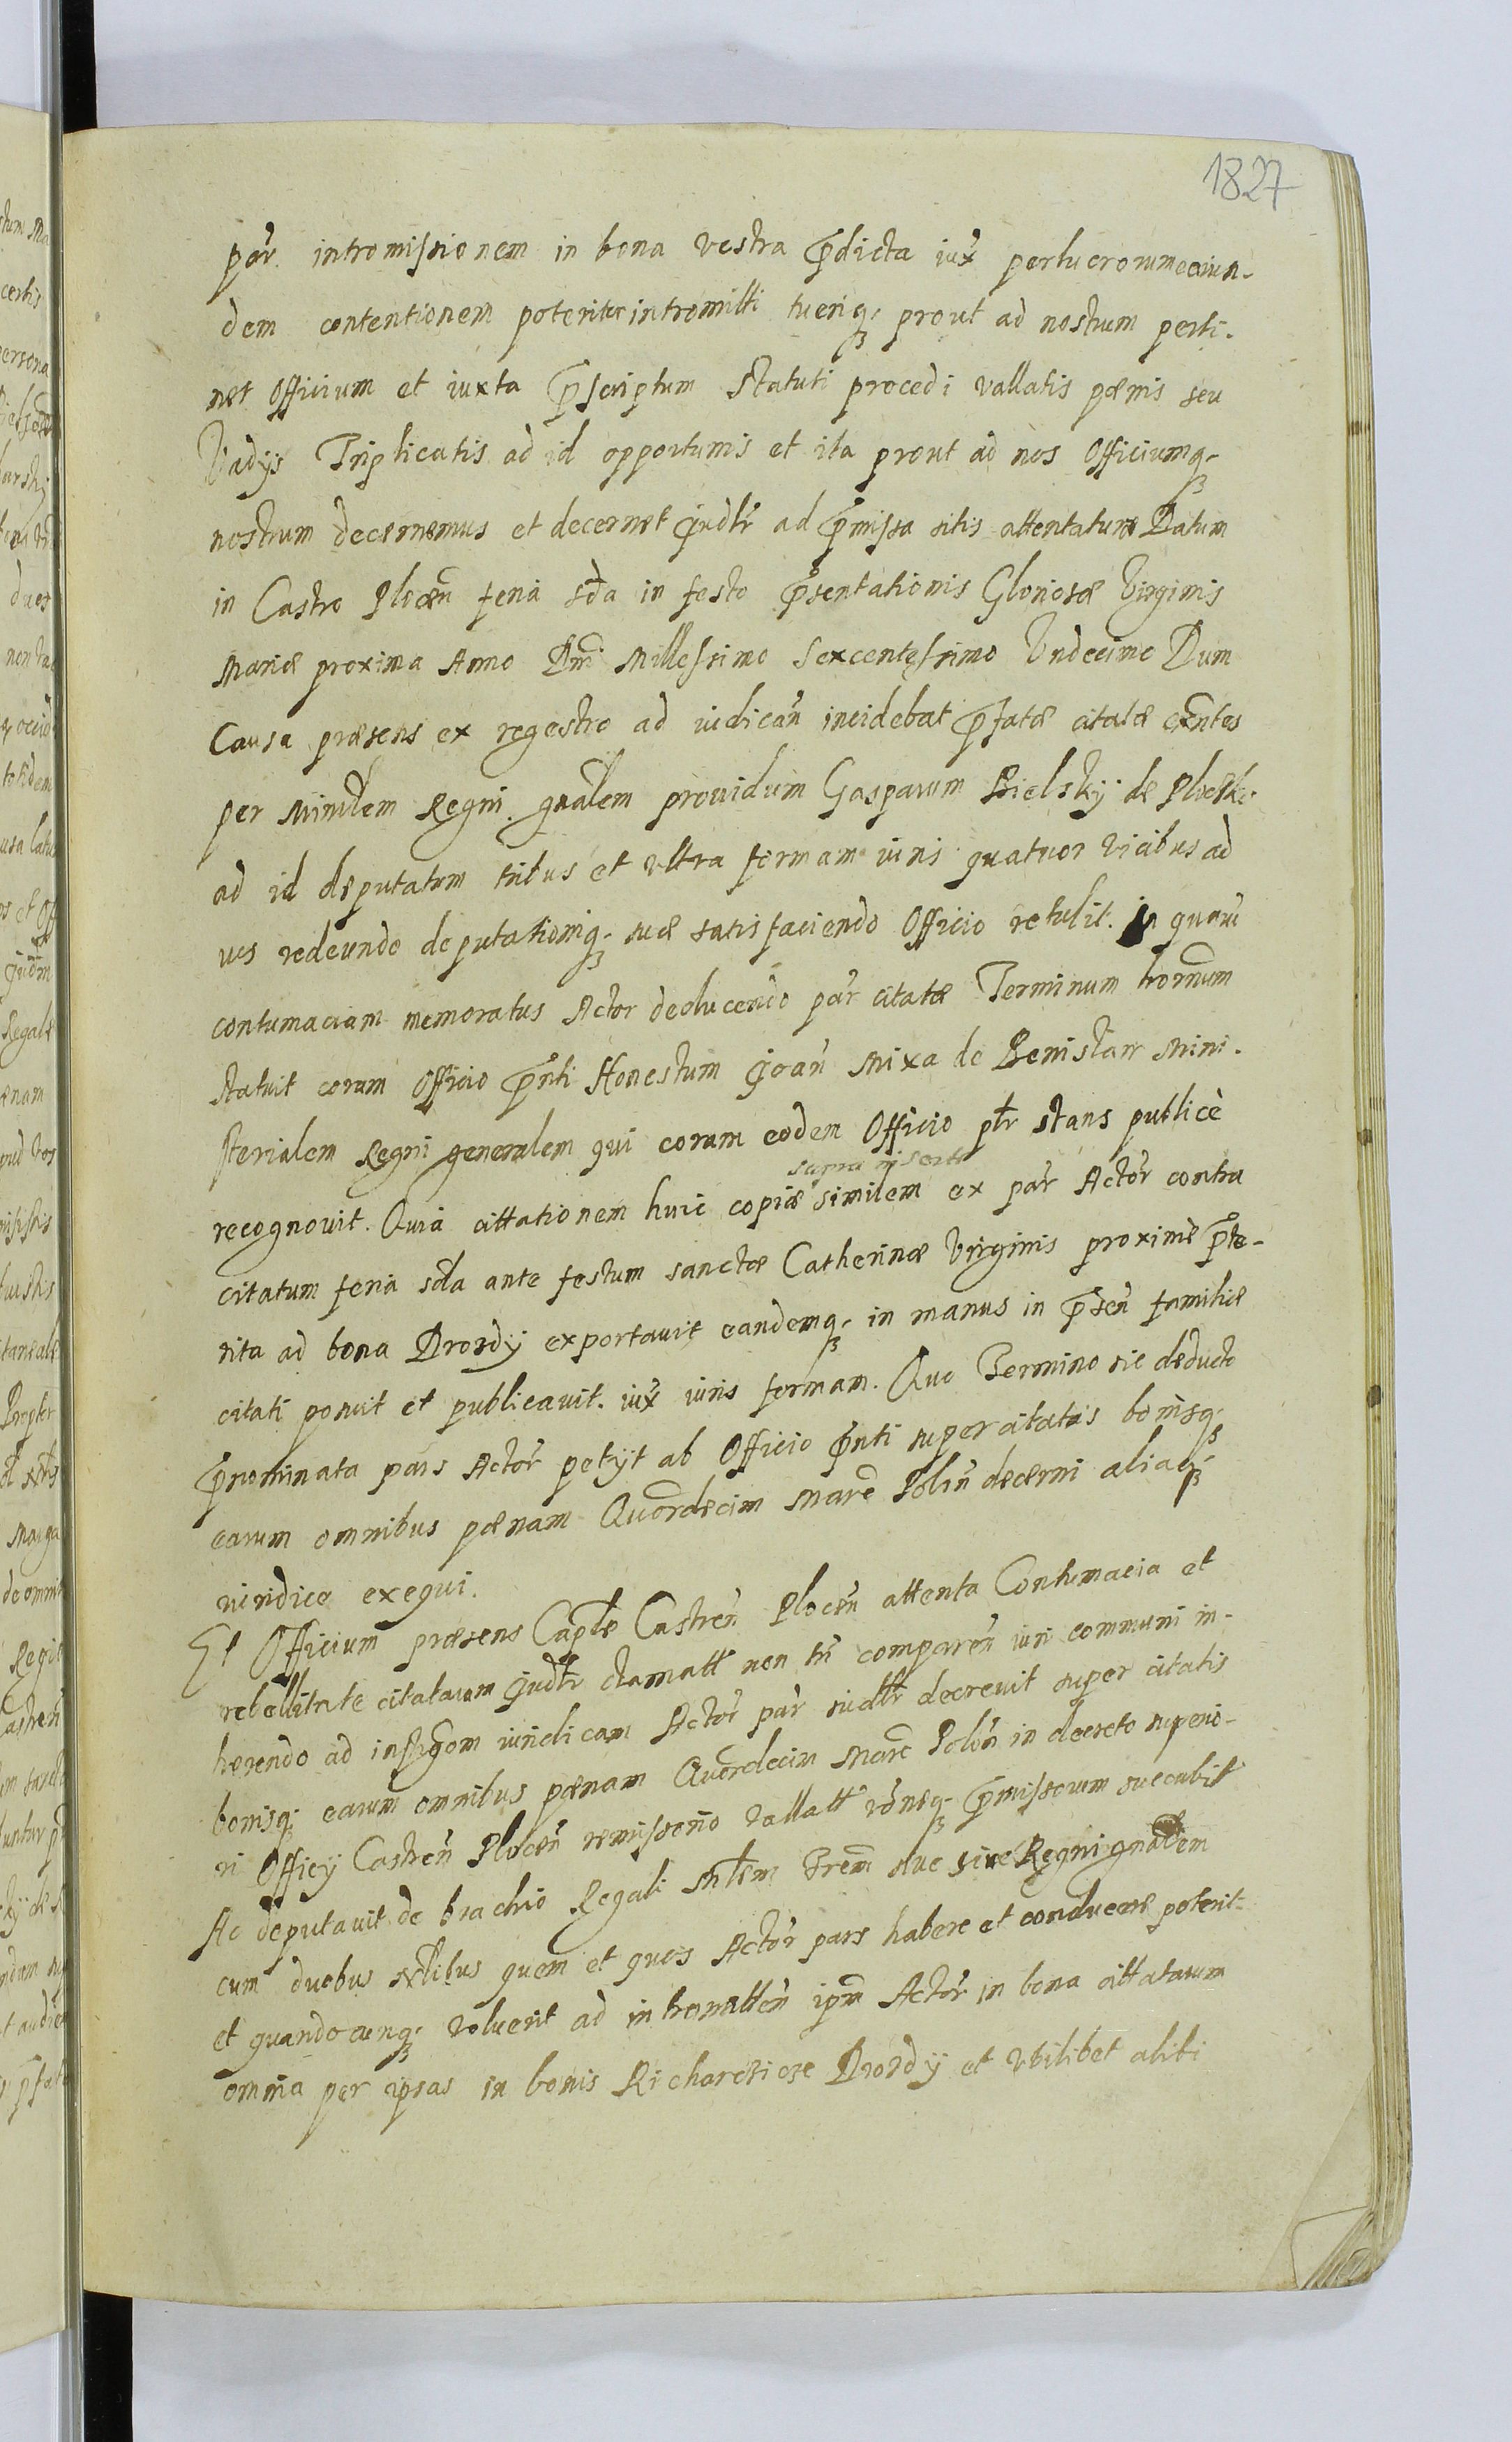 1827
par̃ intromissionem in bona vestra p̃dicta iux̃ perlucrorum eorun-
dem contentionem poteritis intromitti tueriq; prout ad nostrum perti-
net Officium et iuxta p̃scriptum Statuti procedi vallatis pœnis seu
Vadijs Triplicatis ad id opportunis et ita prout ad nos Officiumq;
nostrum decernemus et decernet Iudr̃ ad p̃missa sitis attentaturæ Datum
in Castro Plocen̄ feria sda in festo p̃sentationis Gloriosæ Virginis
Mariæ proxima Anno Dni Millessimo Sexcentessimo Undecimo Dum
Causa præsens ex regestro ad iudican̄ incidebat p̃fatæ citatæ exn̄tes
per Minrlem Regni gnalem prouidum Gasparum Bielskÿ de Plocko
ad id deputatum tribus et vltra formam iuris quatuor vicibus ad
ius redeundo deputationiq; suæ satisfaciendo Officio retulit. In quarũ
contumaciam memoratus Actor deducendo par̃ citatæ Terminum hornum
statuit coram Officio p̃nti Honestum Joan̄ Mixa de Benislaw Mini-
sterialem Regni generalem qui coram eodem Officio ptr̃ stans publicè
supra inserta
recognouit. Quia cittationem huic copiæ similem ex par̃ Actor̃ contra
citatum feria sda ante festum sanctæ Catherinæ Virginis proximè p̃te-
rita ad bona Drozdÿ exportauit eandemq; in manus in p̃sen̄ familiæ
citati posuit et publicauit. iux̃ iuris formam. Quo Termino sic deducto
p̃nominata pars Actor̃ petijt ab Officio p̃nti super citatis bonisq;
earum omnibus pœnam Quordecim Marc̃ Polin̄ decerni aliaq;
iuridice exequi.
Et Officium præsens Caple Castren̄ Plocen̄ attenta Contumacia et
rebellitate citatarum Iudr̃ clamatt non tñ comparen̄ iuri communi in-
herendo ad instãm iuridicam Actor̃ par̃ iudtr̃ decreuit super citatis
bonisq; earum omnibus pœnam Quordecim Marc̃ Polon̄ in decreto superio-
ri Officÿ Castren̄ Plocen̄ remissono vallatt rõneq; p̃missorum succubit
Ac deputauit de brachio Regali Mlem Trem suæ siue Regni gnalem
cum duobus Nlibus quem et quos Actor̃ pars habere et conducere poterit
et quandocunq; voluerit ad intromitten̄ ipm̃ Actor̃ in bona cittatarum
omnia per ipsas in bonis Richarcice Drozdÿ et vbilibet alibi